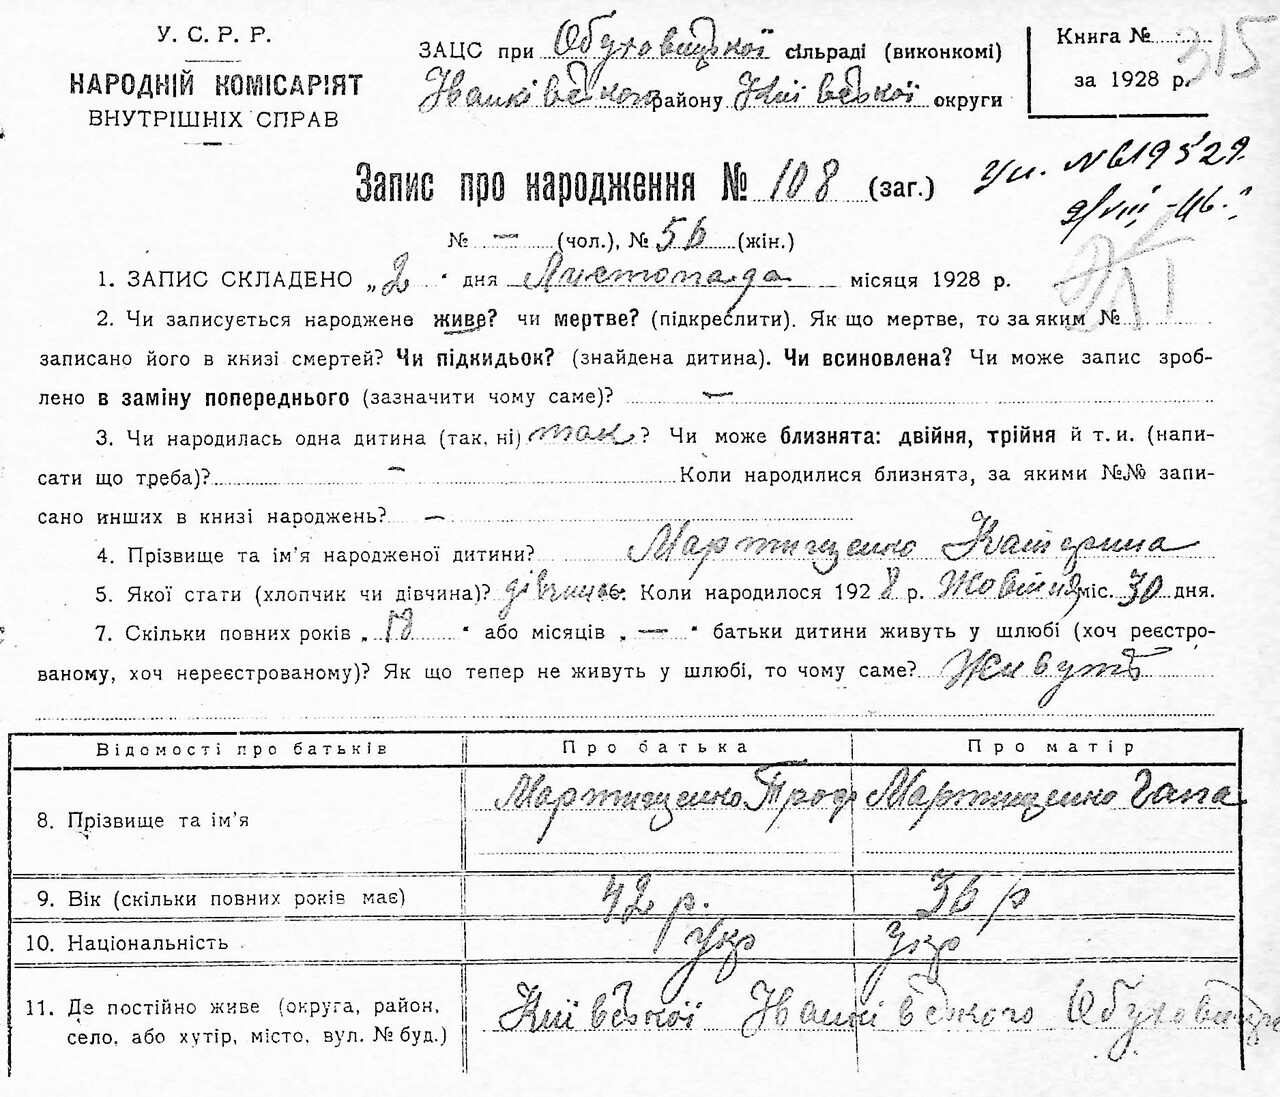 У. С. Р. Р.
НАРОДНІЙ КОМІСАРІЯТ
ВНУТРІШНІХ СПРАВ
ЗАЦС при Обуховицької сільраді (виконкомі)
Іванківського району Київської округи
Книга № 315
за 1928 р.
Запис про народження № 108 (заг.)
№ — (чол.), № 56 (жін.)
1. ЗАПИС СКЛАДЕНО „2" дня Листопада місяця 1928 р.
2. Чи записується народжене живе? чи мертве? (підкреслити). Як що мертве, то за яким №
записано його в книзі смертей? Чи підкидьок? (знайдена дитина). Чи всиновлена? Чи може запис зроб-
лено в заміну попереднього (зазначити чому саме)? —
3. Чи народилась одна дитина (так, ні) так? Чи може близнята: двійня, трійня й т. и. (напи-
сати що треба)? — Коли народилися близнята, за якими №№ запи-
сано инших в книзі народжень? —
4. Прізвище та ім'я народженої дитини? Мартищенко Катерина
5. Якої стати (хлопчик чи дівчина)? дівчина. Коли народилося 1928 р. Жовтня міс. 30 дня.
7. Скільки повних років „18" або місяців „—" батьки дитини живуть у шлюбі (хоч реєстро-
ваному, хоч нереєстрованому)? Як що тепер не живуть у шлюбі, то чому саме? Живуть
Відомості про батьків Про батька Про матір
8. Прізвище та ім'я Мартищенко Троф Мартищенко Гапа
9. Вік (скільки повних років має) 42 р. 36 р
10. Національність укр укр
11. Де постійно живе (округа, район, село, або хутір, місто, вул. № буд.) Київської Іванківського